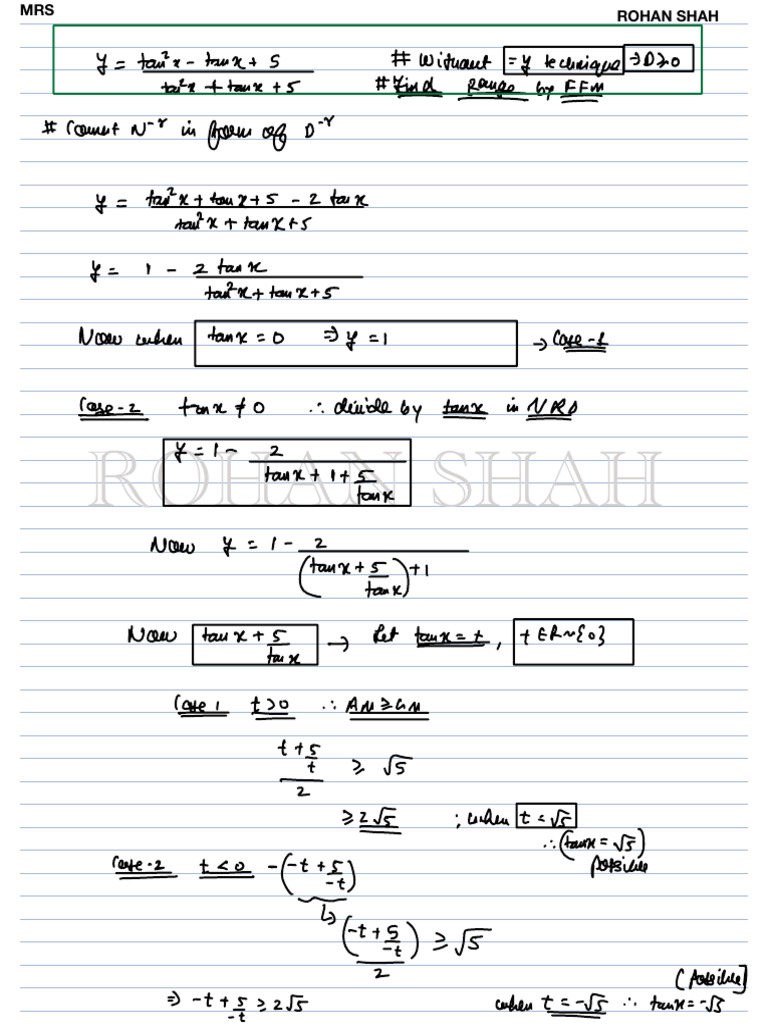 MRS
ROHAN SHAH
y = tan²x - tanx + 5 / tan²x + tanx + 5 # Without = y technique → D≥0
# Find Range by FFM
# Convert N⁻ʳ in form of D⁻ʳ
y = tan²x + tanx + 5 - 2 tanx / tan²x + tanx + 5
y = 1 - 2 tanx / tan²x + tanx + 5
Now when tanx = 0 ⇒ y = 1 → Case-1
Case-2 tanx ≠ 0 ∴ divide by tanx in NRD
y = 1 - 2 / tanx + 1 + 5/tanx
ROHAN SHAH
Now y = 1 - 2 / (tanx + 5/tanx) + 1
Now tanx + 5/tanx → Let tanx = t, t ∈ R ~ {0}
Case 1 t > 0 ∴ AM ≥ GM
t + 5/t / 2 ≥ √5
≥ 2√5 ; when t = √5
∴ (tanx = √5)
possible
Case-2 t < 0 -(-t + 5/-t)
↳ (-t + 5/-t) / 2 ≥ √5
(possible)
⇒ -t + 5/-t ≥ 2√5 when t = -√5 ∴ tanx = -√5